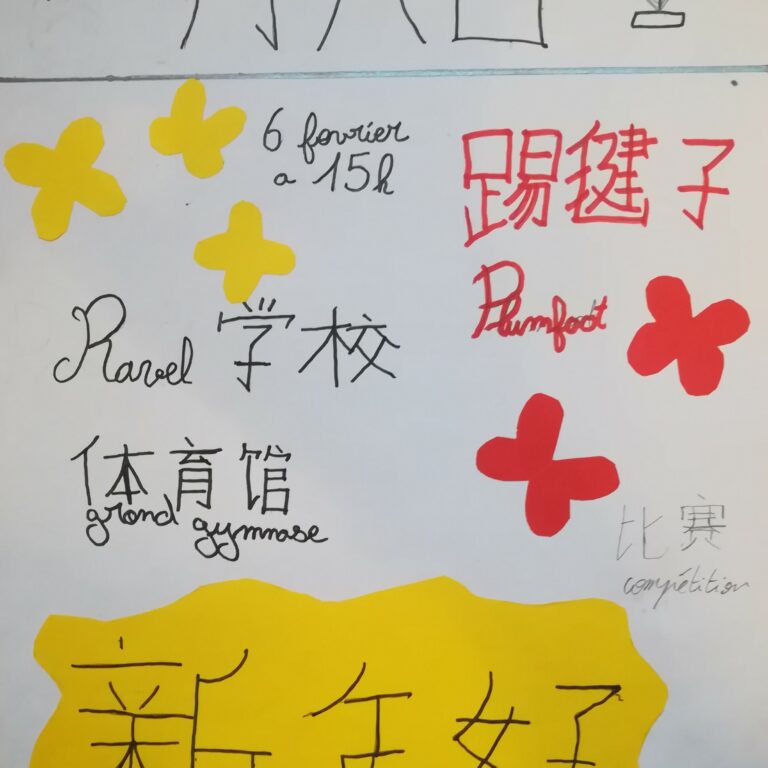 6 fevrier
a 15h
踢毽子
Plumfoot
Ravel 学校
体育馆
grand gymnase
比赛
compétition
新年好